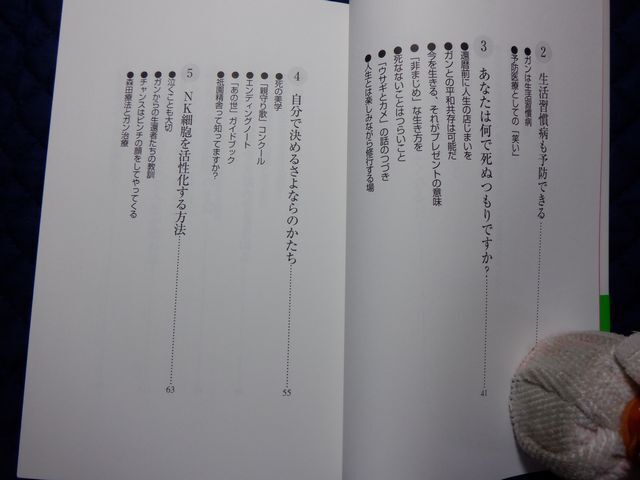 2 生活習慣病も予防できる
●ガンは生活習慣病
●予防医療としての「笑い」
3 あなたは何で死ぬつもりですか？ 41
●還暦前に人生の店じまいを
●ガンとの平和共存は可能だ
●今を生きる、それがプレゼントの意味
●「非まじめ」な生き方を
●死なないことはつらいこと
●「ウサギとカメ」の話のつづき
●人生とは楽しみながら修行する場
4 自分で決めるさよならのかたち 55
●死の美学
●「親守り歌」コンクール
●エンディングノート
●「あの世」ガイドブック
●祇園精舎って知ってますか？
5 NK細胞を活性化する方法 63
●泣くことも大切
●ガンからの生還者たちの教訓
●チャンスはピンチの顔をしてやってくる
●森田療法とガン治療